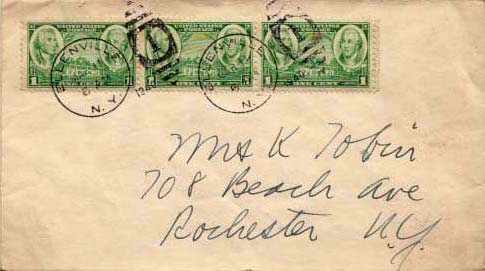 UNITED STATES POSTAGE UNITED STATES POSTAGE UNITED STATES POSTAGE
1 1 ONE CENT 1 ONE CENT 1
ELLENVILLE N.Y. ELLENVILLE
Mrs K Tobin
708 Beach Ave
Rochester N.Y.